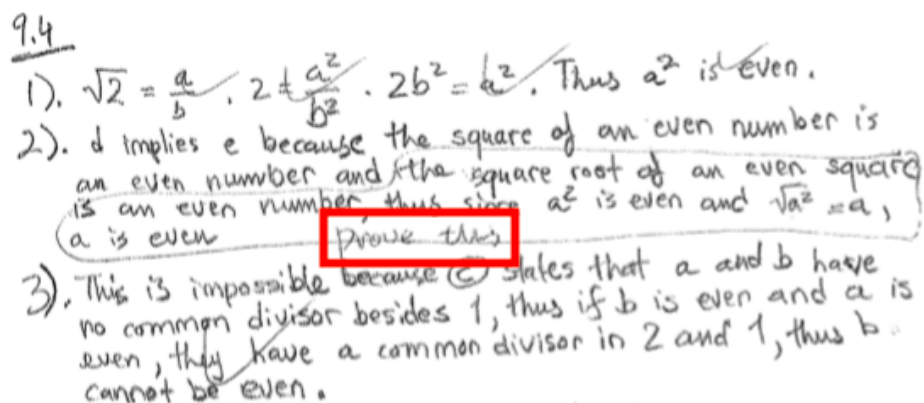 9.4
1). √2 = a/b . 2 = a²/b² . 2b² = a². Thus a² is even.
2). d implies e because the square of an even number is
an even number and the square root of an even square
is an even number, thus since a² is even and √a² = a,
a is even prove this
3). This is impossible because (c) states that a and b have
no common divisor besides 1, thus if b is even and a is
even, they have a common divisor in 2 and 1, thus b
cannot be even.